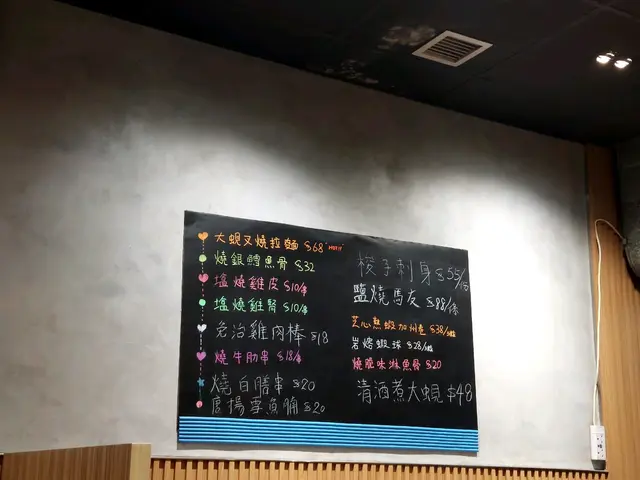 大蜆叉燒拉麵 $68 "HOT!!"
燒銀鱈魚骨 $32
塩燒雞皮 $10/串
塩燒雞腎 $10/串
免治雞肉棒 $18
燒牛肋串 $18/串
燒白膳串 $20
唐揚雪魚腩 $20
梭子刺身 $55/份
鹽燒馬友 $88/條
芝心熱蝦加州卷 $38/
岩燒蝦球 $28/
燒脆味淋魚骨 $20
清酒煮大蜆 $48